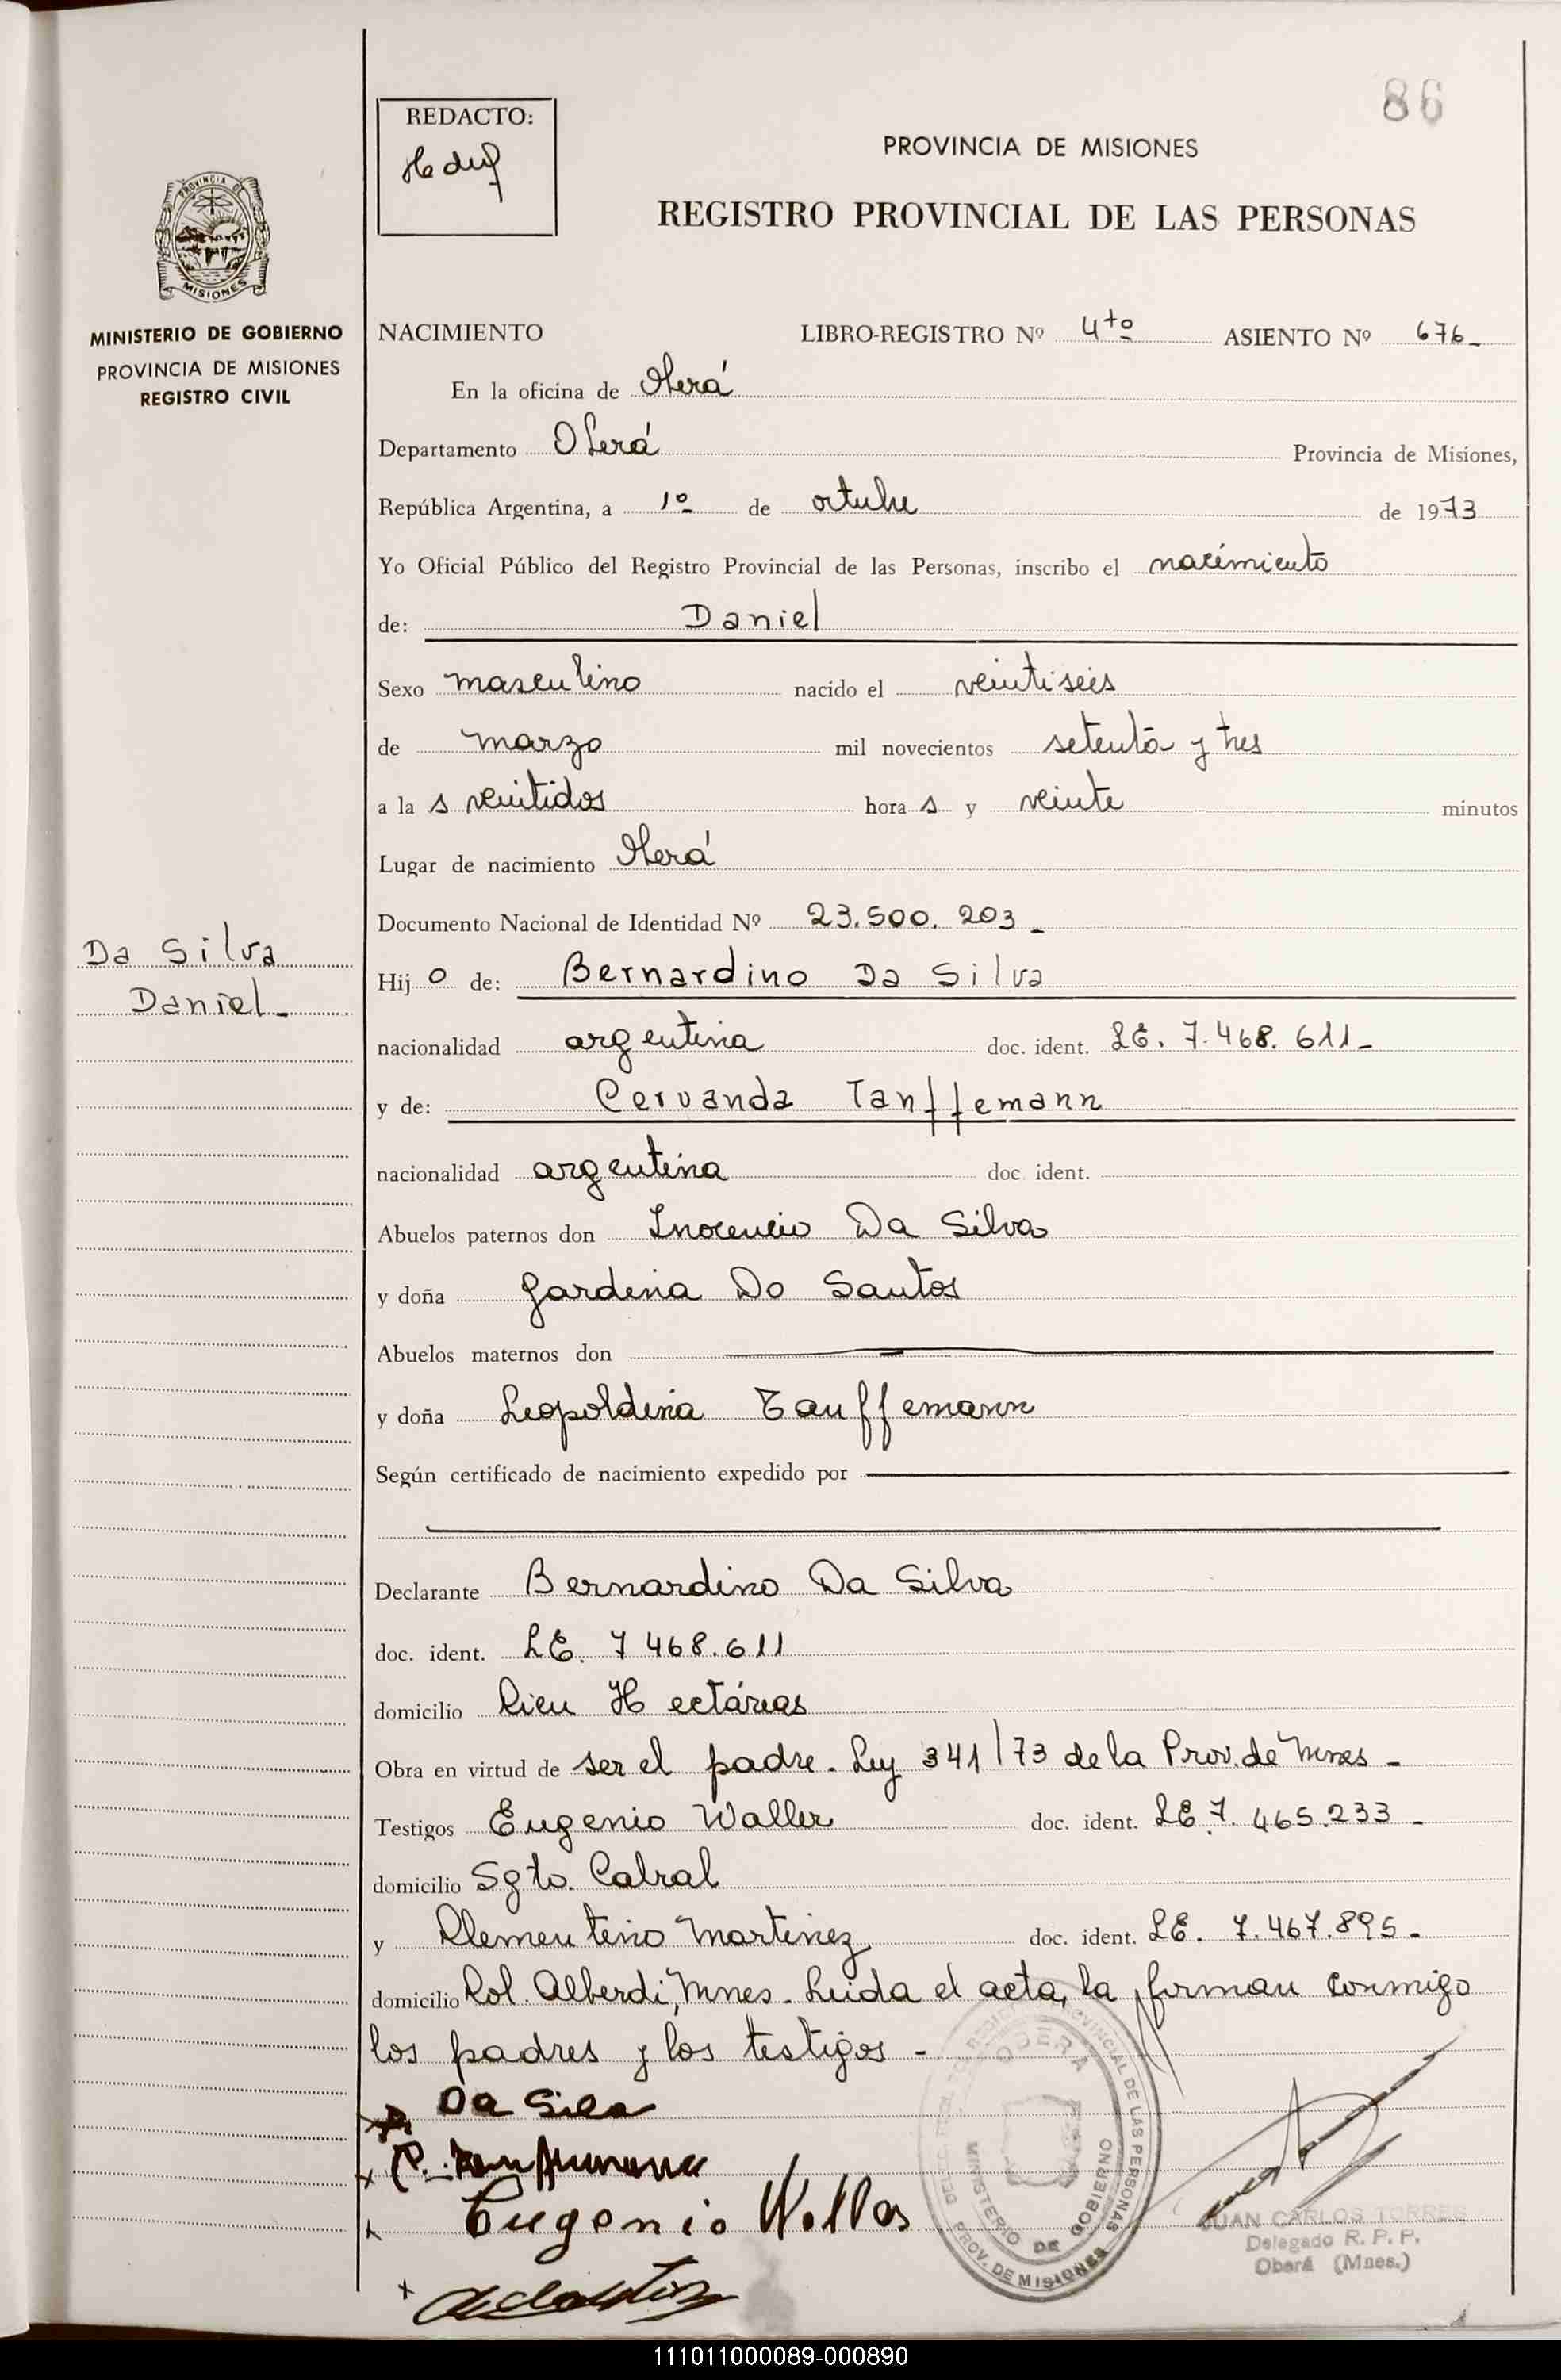 86
REDACTO:
PROVINCIA DE MISIONES
REGISTRO PROVINCIAL DE LAS PERSONAS
PROVINCIA DE
MISIONES
MINISTERIO DE GOBIERNO
PROVINCIA DE MISIONES
REGISTRO CIVIL
NACIMIENTO LIBRO-REGISTRO Nº 4to ASIENTO Nº 676-
En la oficina de Oberá
Departamento Oberá Provincia de Misiones,
República Argentina, a 1º de octubre de 1973
Yo Oficial Público del Registro Provincial de las Personas, inscribo el nacimiento
de: Daniel
Sexo masculino nacido el veintiseis
de marzo mil novecientos setenta y tres
a la s veintidos hora s y veinte minutos
Lugar de nacimiento Oberá
Documento Nacional de Identidad Nº 23.500.203-
Da Silva
Daniel-
Hij o de: Bernardino Da Silva
nacionalidad argentina doc. ident. LE. 7.468.611-
y de: Cervanda Tanffemann
nacionalidad argentina doc. ident.
Abuelos paternos don Inocencio Da Silva
y doña Jardena Do Santos
Abuelos maternos don
y doña Leopoldina Tauffemann
Según certificado de nacimiento expedido por
Declarante Bernardino Da Silva
doc. ident. LE. 7 468.611
domicilio Cien Hectáreas
Obra en virtud de ser el padre. Ley 341/73 de la Prov. de Mnes-
Testigos Eugenio Waller doc. ident. LE 7.465.233-
domicilio Sgto. Cabral
y Clementino Martinez doc. ident. LE. 7.467.895-
domicilio Col. Alberdi, Mnes. Leida el acta, la firman conmigo
los padres y los testigos-
Da Sila
Eugenio Waller
OBERA
MINISTERIO DE GOBIERNO
PROV. DE MISIONES
JUAN CARLOS TORRES
Delegado R. P. P.
Oberá (Mnes.)
111011000089-000890